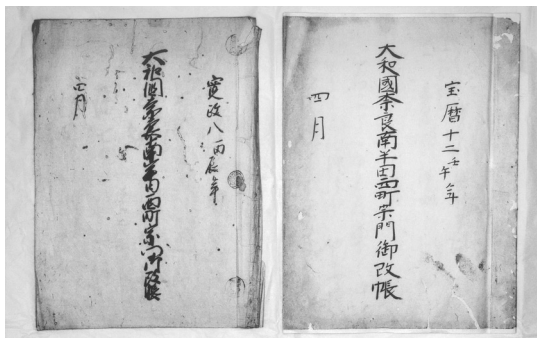 宝暦十二壬午年
大和國奈良南半田西町宗門御改帳
四月
寛政八丙辰年
大和国奈良南半田西町宗門御改帳
四月